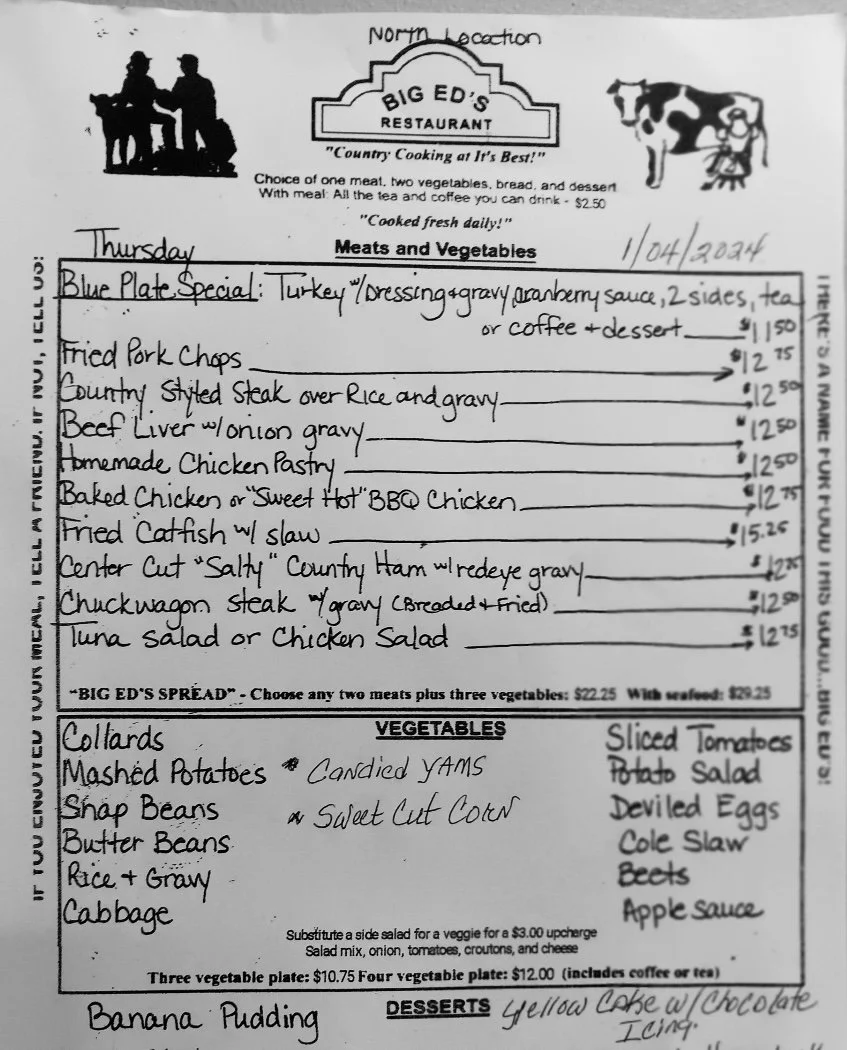 North Location
BIG ED'S
RESTAURANT
"Country Cooking at It's Best!"
Choice of one meat, two vegetables, bread, and dessert
With meal: All the tea and coffee you can drink - $2.50
"Cooked fresh daily!"
Thursday
Meats and Vegetables
1/04/2024
Blue Plate Special: Turkey w/Dressing+gravy, cranberry sauce, 2 sides, tea
or coffee + dessert $11.50
Fried Pork Chops $12.75
Country Styled Steak over Rice and gravy $12.50
Beef Liver w/onion gravy $12.50
Homemade Chicken Pastry $12.50
Baked Chicken or "Sweet Hot" BBQ Chicken $12.75
Fried Catfish w/ slaw $15.25
Center Cut "Salty" Country Ham w/redeye gravy $12.75
Chuckwagon steak w/gravy (Breaded + Fried) $12.50
Tuna salad or Chicken Salad $12.75
"BIG ED'S SPREAD" - Choose any two meats plus three vegetables: $22.25 With seafood: $29.25
IF YOU ENJOYED YOUR MEAL, TELL A FRIEND. IF NOT, TELL US!
THERE'S A NAME FOR FOOD THIS GOOD...BIG ED'S!
VEGETABLES
Collards
Mashed Potatoes
Snap Beans
Butter Beans
Rice + Gravy
Cabbage
* Candied YAMS
* Sweet Cut Corn
Sliced Tomatoes
Potato Salad
Deviled Eggs
Cole Slaw
Beets
Apple Sauce
Substitute a side salad for a veggie for a $3.00 upcharge
Salad mix, onion, tomatoes, croutons, and cheese
Three vegetable plate: $10.75 Four vegetable plate: $12.00 (includes coffee or tea)
DESSERTS
Banana Pudding
Yellow Cake w/Chocolate
Icing.